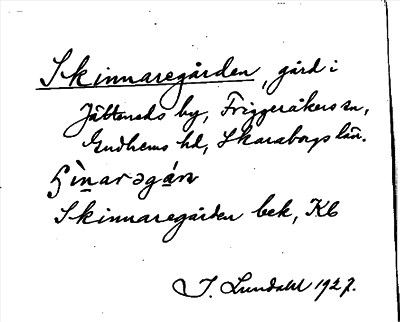 Skinnaregården, gård i
Jättened by, Friggeråkers sn,
Gudhems hd, Skaraborgs län.
Skinnaregården bek, Kb
I. Lundahl 1927.